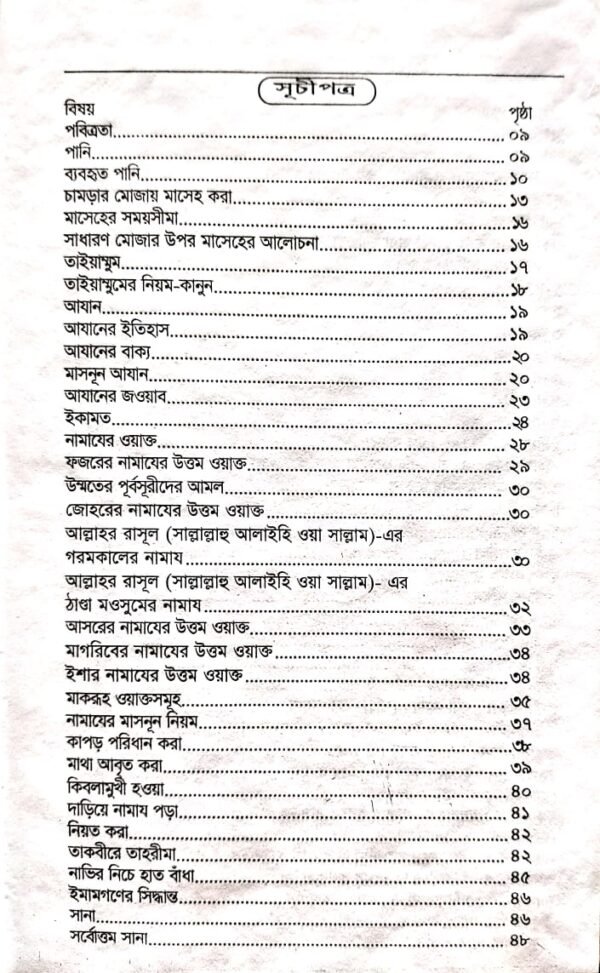 সূচীপত্র
বিষয় পৃষ্ঠা
পবিত্রতা........ ০৯
পানি........ ০৯
ব্যবহৃত পানি........ ১০
চামড়ার মোজায় মাসেহ করা........ ১৩
মাসেহের সময়সীমা........ ১৬
সাধারণ মোজার উপর মাসেহের আলোচনা........ ১৬
তাইয়াম্মুম........ ১৭
তাইয়াম্মুমের নিয়ম-কানুন........ ১৮
আযান........ ১৯
আযানের ইতিহাস........ ১৯
আযানের বাক্য........ ২০
মাসনূন আযান........ ২০
আযানের জওয়াব........ ২৩
ইকামত........ ২৪
নামাযের ওয়াক্ত........ ২৮
ফজরের নামাযের উত্তম ওয়াক্ত........ ২৯
উম্মতের পূর্বসূরীদের আমল........ ৩০
জোহরের নামাযের উত্তম ওয়াক্ত........ ৩০
আল্লাহর রাসূল (সাল্লাল্লাহু আলাইহি ওয়া সাল্লাম)-এর
গরমকালের নামায........ ৩০
আল্লাহর রাসূল (সাল্লাল্লাহু আলাইহি ওয়া সাল্লাম)- এর
ঠাণ্ডা মওসুমের নামায........ ৩২
আসরের নামাযের উত্তম ওয়াক্ত........ ৩৩
মাগরিবের নামাযের উত্তম ওয়াক্ত........ ৩৪
ইশার নামাযের উত্তম ওয়াক্ত........ ৩৪
মাকরূহ ওয়াক্তসমূহ........ ৩৫
নামাযের মাসনূন নিয়ম........ ৩৭
কাপড় পরিধান করা........ ৩৮
মাথা আবৃত করা........ ৩৯
কিবলামুখী হওয়া........ ৪০
দাড়িয়ে নামায পড়া........ ৪১
নিয়ত করা........ ৪২
তাকবীরে তাহরীমা........ ৪২
নাভির নিচে হাত বাঁধা........ ৪৫
ইমামগণের সিদ্ধান্ত........ ৪৬
সানা........ ৪৬
সর্বোত্তম সানা........ ৪৮